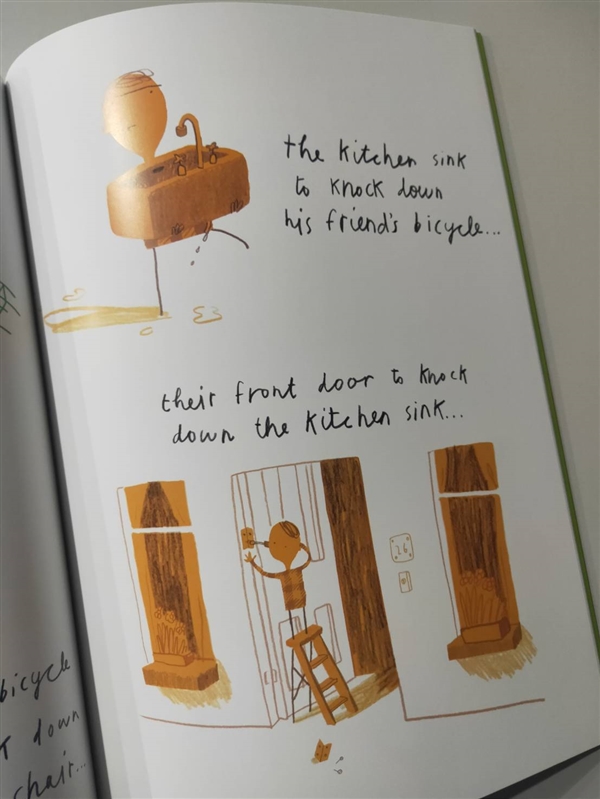 the kitchen sink
to knock down
his friend's bicycle...
their front door to knock
down the kitchen sink...
26
bicycle
down
chair...